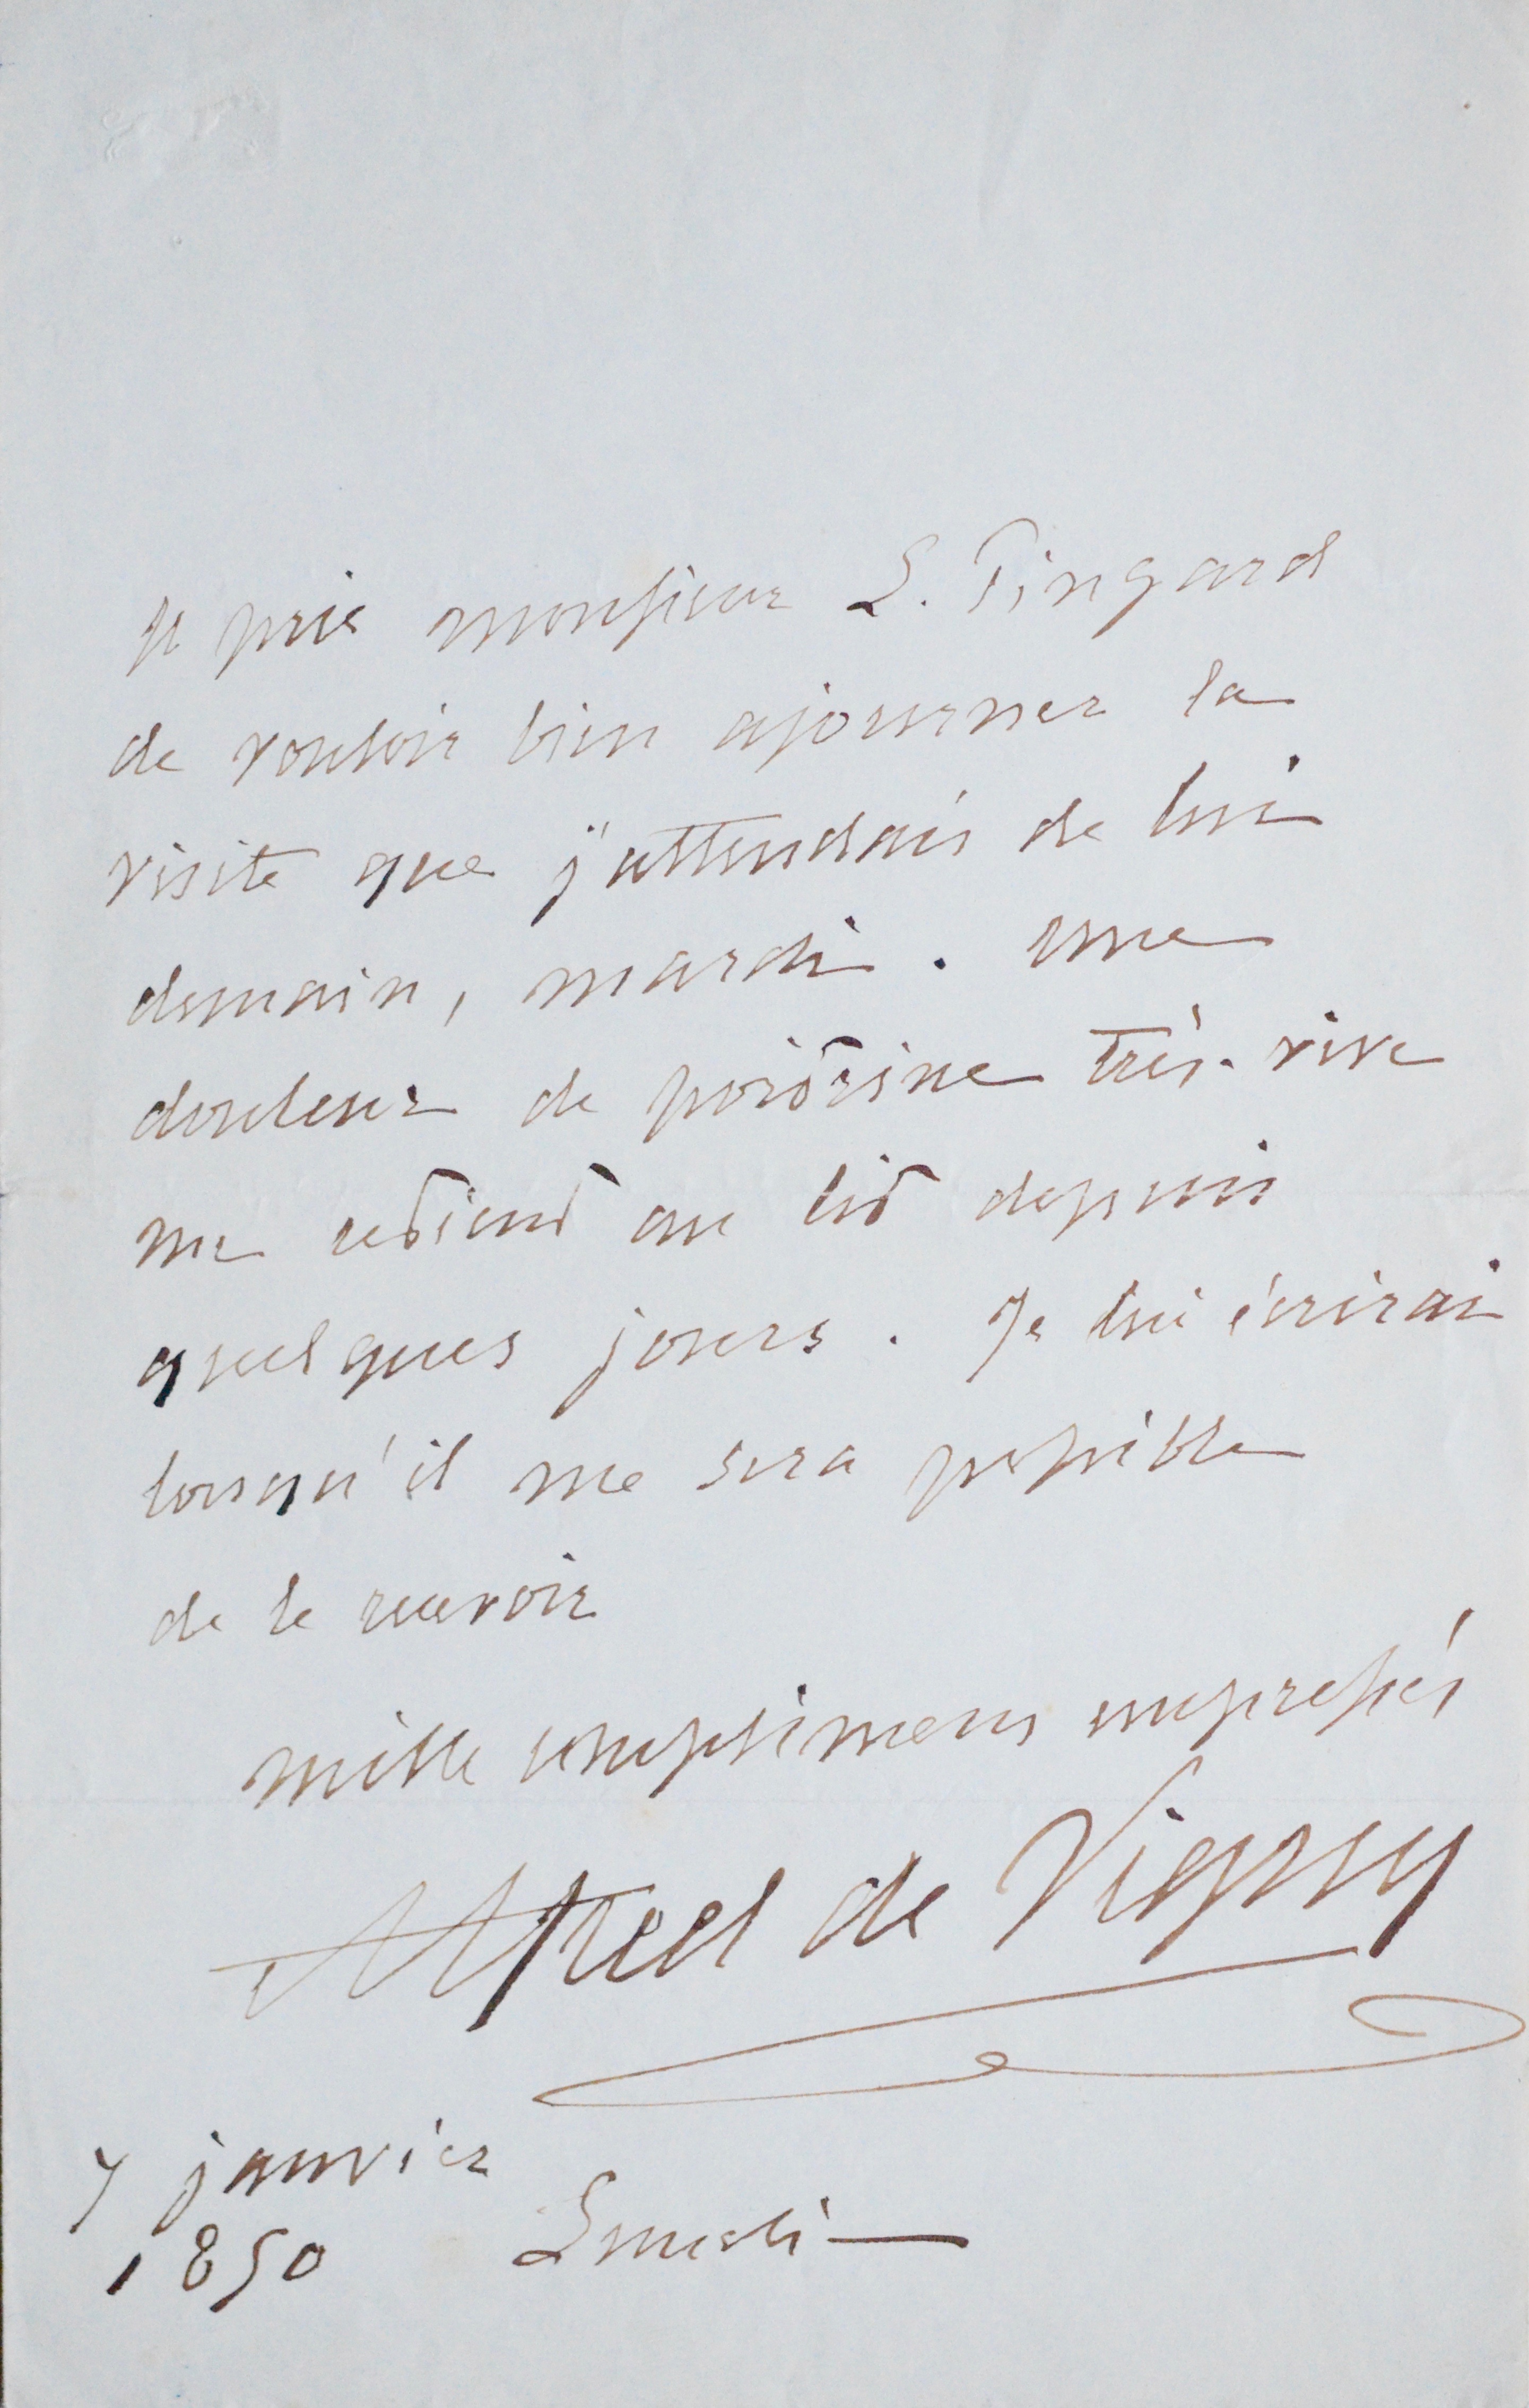 je prie monsieur L. Pingard
de vouloir bien ajourner la
visite que j'attendais de lui
demain, mardi. une
douleur de poitrine très-vive
me retient au lit depuis
quelques jours. Je lui écrirai
lorsqu'il me sera possible
de le recevoir
mille complimens empressés
Alfred de Vigny
7 janvier
1850 Lundi